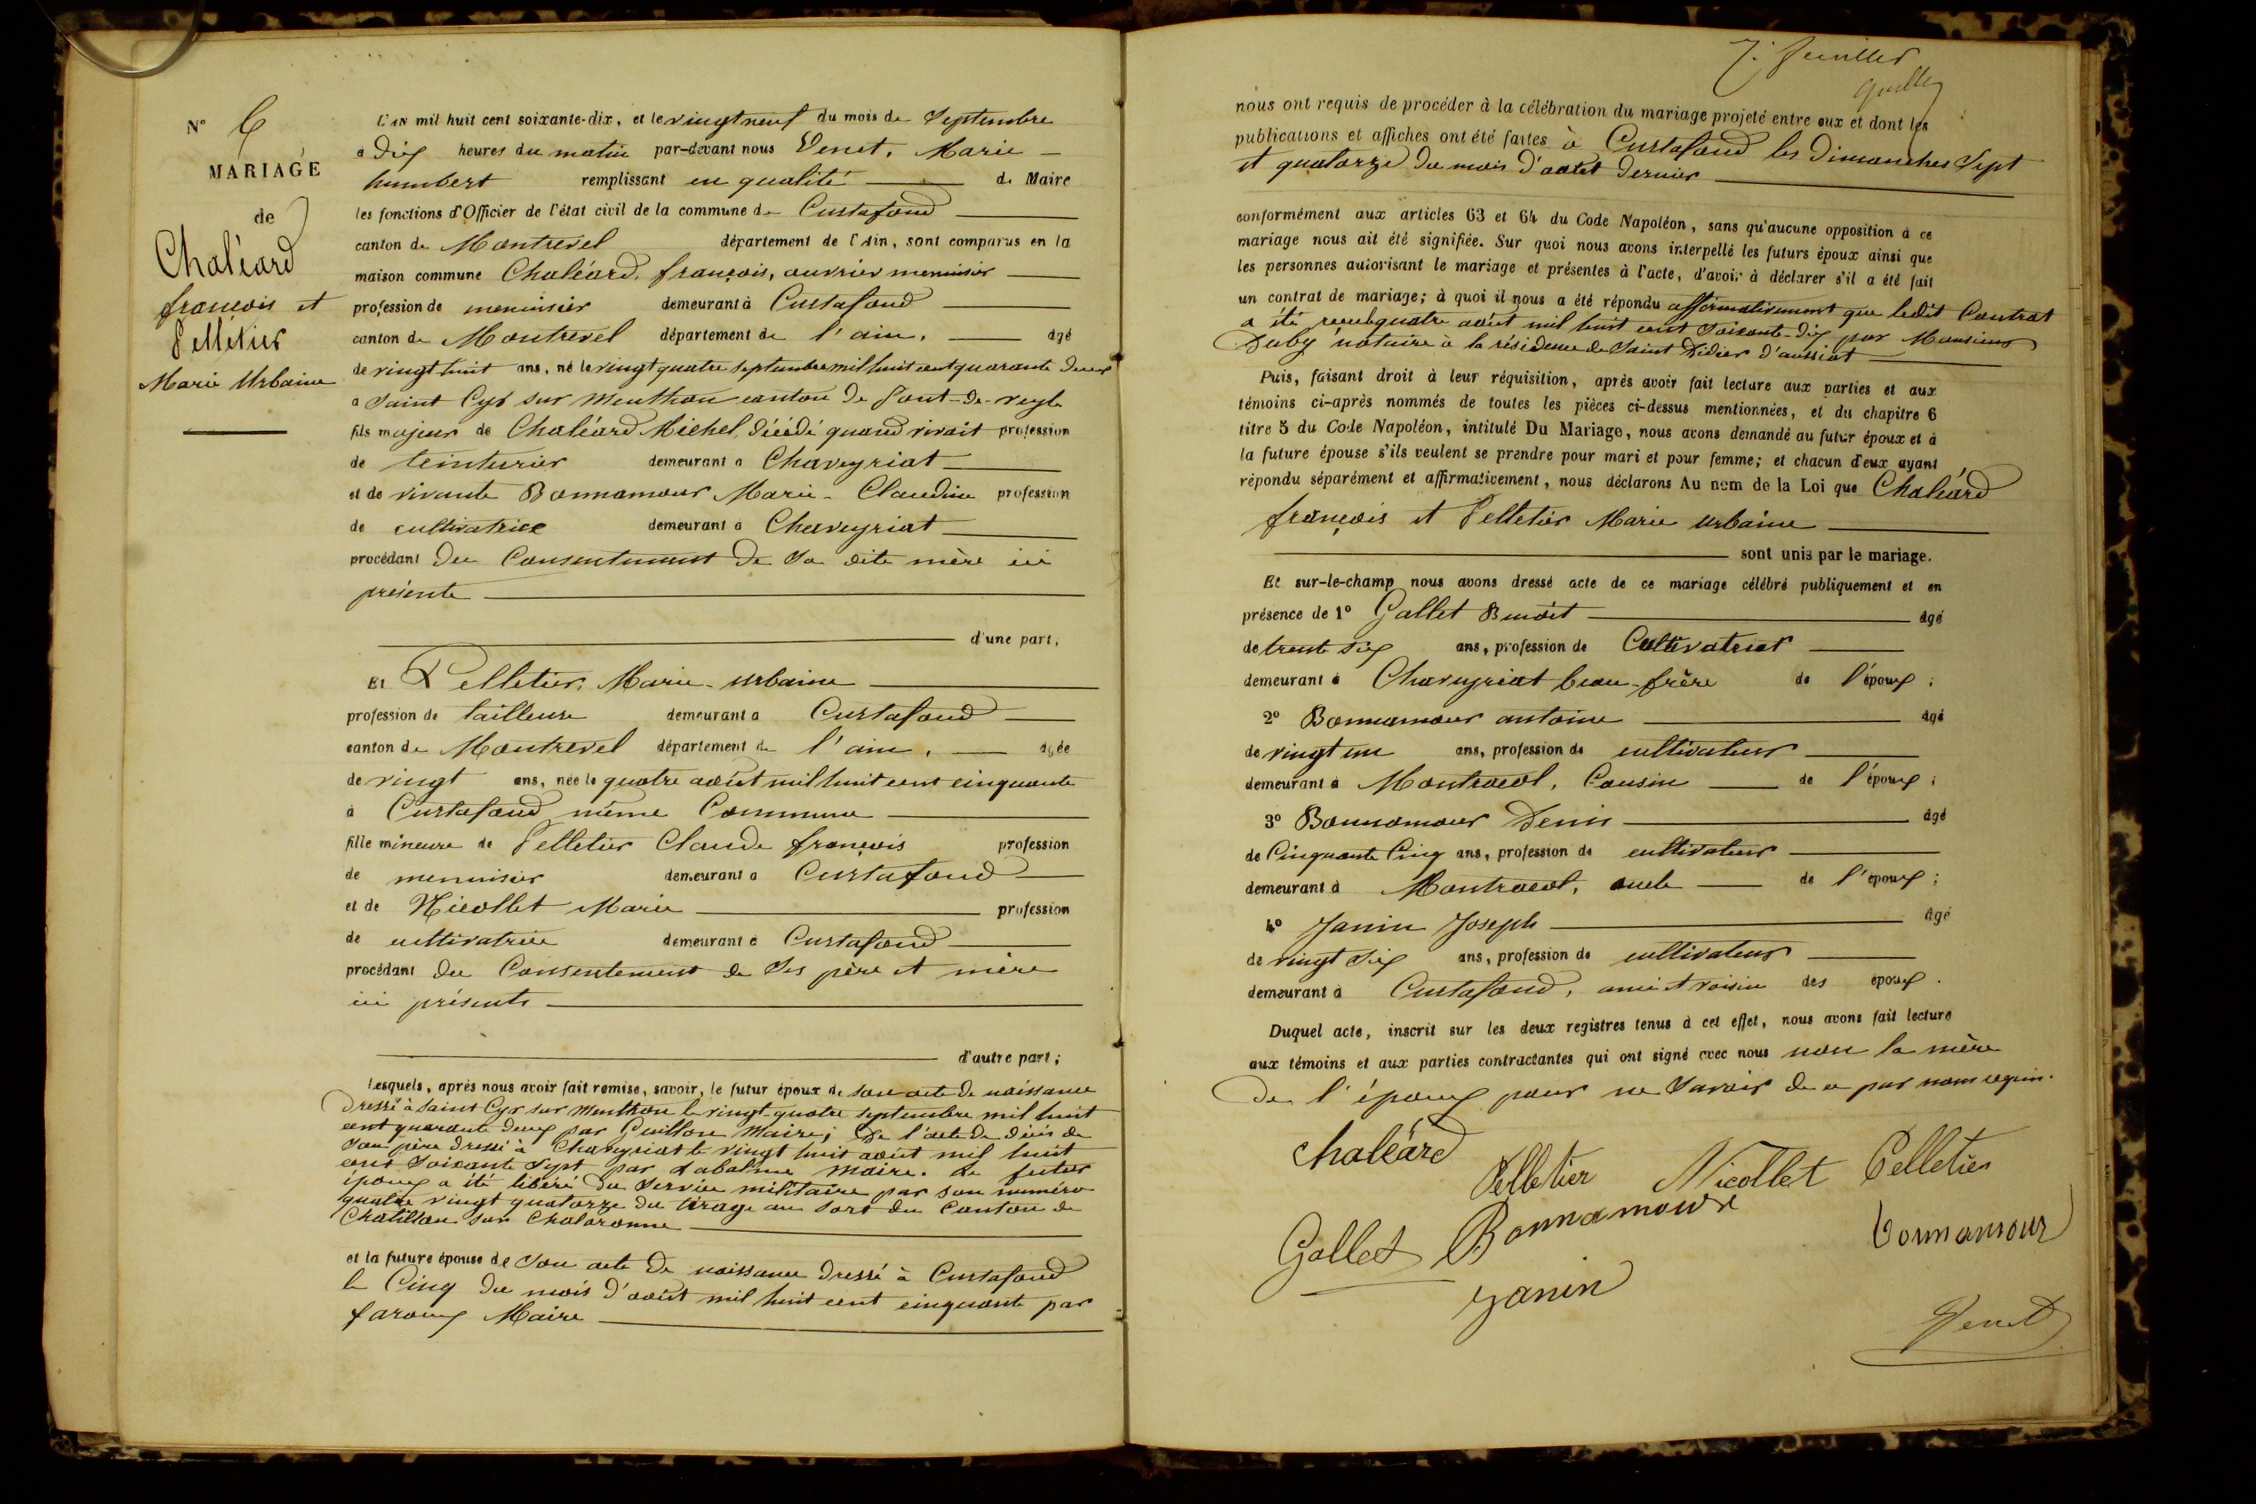 N° 6
MARIAGE
de
Chaléard
françois et
Pelletier
Marie Urbaine
L'AN mil huit cent soixante-dix, et le vingt neuf du mois de Septembre
à dix heures du matin par-devant nous Venet, Marie
humbert remplissant en qualité de Maire
les fonctions d'Officier de l'état civil de la commune de Curtafond
canton de Montrevel département de l'Ain, sont comparus en la
maison commune Chaléard, françois, ouvrier menuisier
profession de menuisier demeurant à Curtafond
canton de Montrevel département de l'ain. âgé
de vingt huit ans, né le vingt quatre septembre mil huit cent quarante deux
à Saint Cyr sur Menthon canton de Pont-de-veyle
fils majeur de Chaléard Michel, décédé quand vivait profession
de teinturier demeurant à Chaveyriat
et de vivante Bonnamour Marie-Claudine profession
de cultivatrice demeurant à Chaveyriat
procédant du Consentement de Sa dite mère ici
présente
d'une part,
Et Pelletier, Marie-Urbaine
profession de tailleuse demeurant à Curtafond
canton de Montrevel département de l'ain, âgée
de vingt ans, née le quatre août mil huit cent cinquante
à Curtafond même Commune
fille mineure de Pelletier Claude françois profession
de menuisier demeurant à Curtafond
et de Nicollet Marie profession
de cultivatrice demeurant à Curtafond
procédant du Consentement de Ses père et mère
ici présents
d'autre part;
Lesquels, après nous avoir fait remise, savoir, le futur époux de son acte de naissance
dressé à Saint Cyr sur Menthon le vingt-quatre septembre mil huit
cent quarante deux par Guillon Maire; De l'acte de décès de
Son père dressé à Chaveyriat le vingt huit août mil huit
cent Soixante Sept par Labalme Maire. Le futur
époux a été libéré du Service militaire par son numéro
quatre vingt quatorze du tirage au Sort du Canton de
Chatillon sur Chalaronne
et la future épouse de Son acte de naissance dressé à Curtafond
le Cinq du mois d'août mil huit cent cinquante par
faroux Maire
nous ont requis de procéder à la célébration du mariage projeté entre eux et dont les
publications et affiches ont été faites à Curtafond les Dimanches Sept
et quatorze du mois d'août dernier
conformément aux articles 63 et 64 du Code Napoléon, sans qu'aucune opposition à ce
mariage nous ait été signifiée. Sur quoi nous avons interpellé les futurs époux ainsi que
les personnes autorisant le mariage et présentes à l'acte, d'avoir à déclarer s'il a été fait
un contrat de mariage; à quoi il nous a été répondu affirmativement que ledit Contrat
a été reçu le quatre août mil huit cent Soixante-dix par Monsieur
Duby notaire à la résidence de Saint Didier d'aussiat
Puis, faisant droit à leur réquisition, après avoir fait lecture aux parties et aux
témoins ci-après nommés de toutes les pièces ci-dessus mentionnées, et du chapitre 6
titre 5 du Code Napoléon, intitulé Du Mariage, nous avons demandé au futur époux et à
la future épouse s'ils veulent se prendre pour mari et pour femme; et chacun d'eux ayant
répondu séparément et affirmativement, nous déclarons Au nom de la Loi que Chaléard
françois et Pelletier Marie Urbaine
sont unis par le mariage.
Et sur-le-champ nous avons dressé acte de ce mariage célébré publiquement et en
présence de 1° Gallet Benoit âgé
de trente Six ans, profession de Cultivateur
demeurant à Chaveyriat beau-frère de l'époux;
2° Bonnamour antoine âgé
de vingt un ans, profession de cultivateur
demeurant à Montracol, Cousin de l'époux;
3° Bonnamour Denis âgé
de Cinquante Cinq ans, profession de cultivateur
demeurant à Montracol, oncle de l'époux;
4° Janin Joseph âgé
de vingt Six ans, profession de cultivateur
demeurant à Curtafond, ami et voisin des époux.
Duquel acte, inscrit sur les deux registres tenus à cet effet, nous avons fait lecture
aux témoins et aux parties contractantes qui ont signé avec nous non la mère
de l'époux pour ne Savoir de ce par nous requis.
Chaléard
Pelletier Nicollet Pelletier
Gallet Bonnamour bonnamour
Janin
Venet